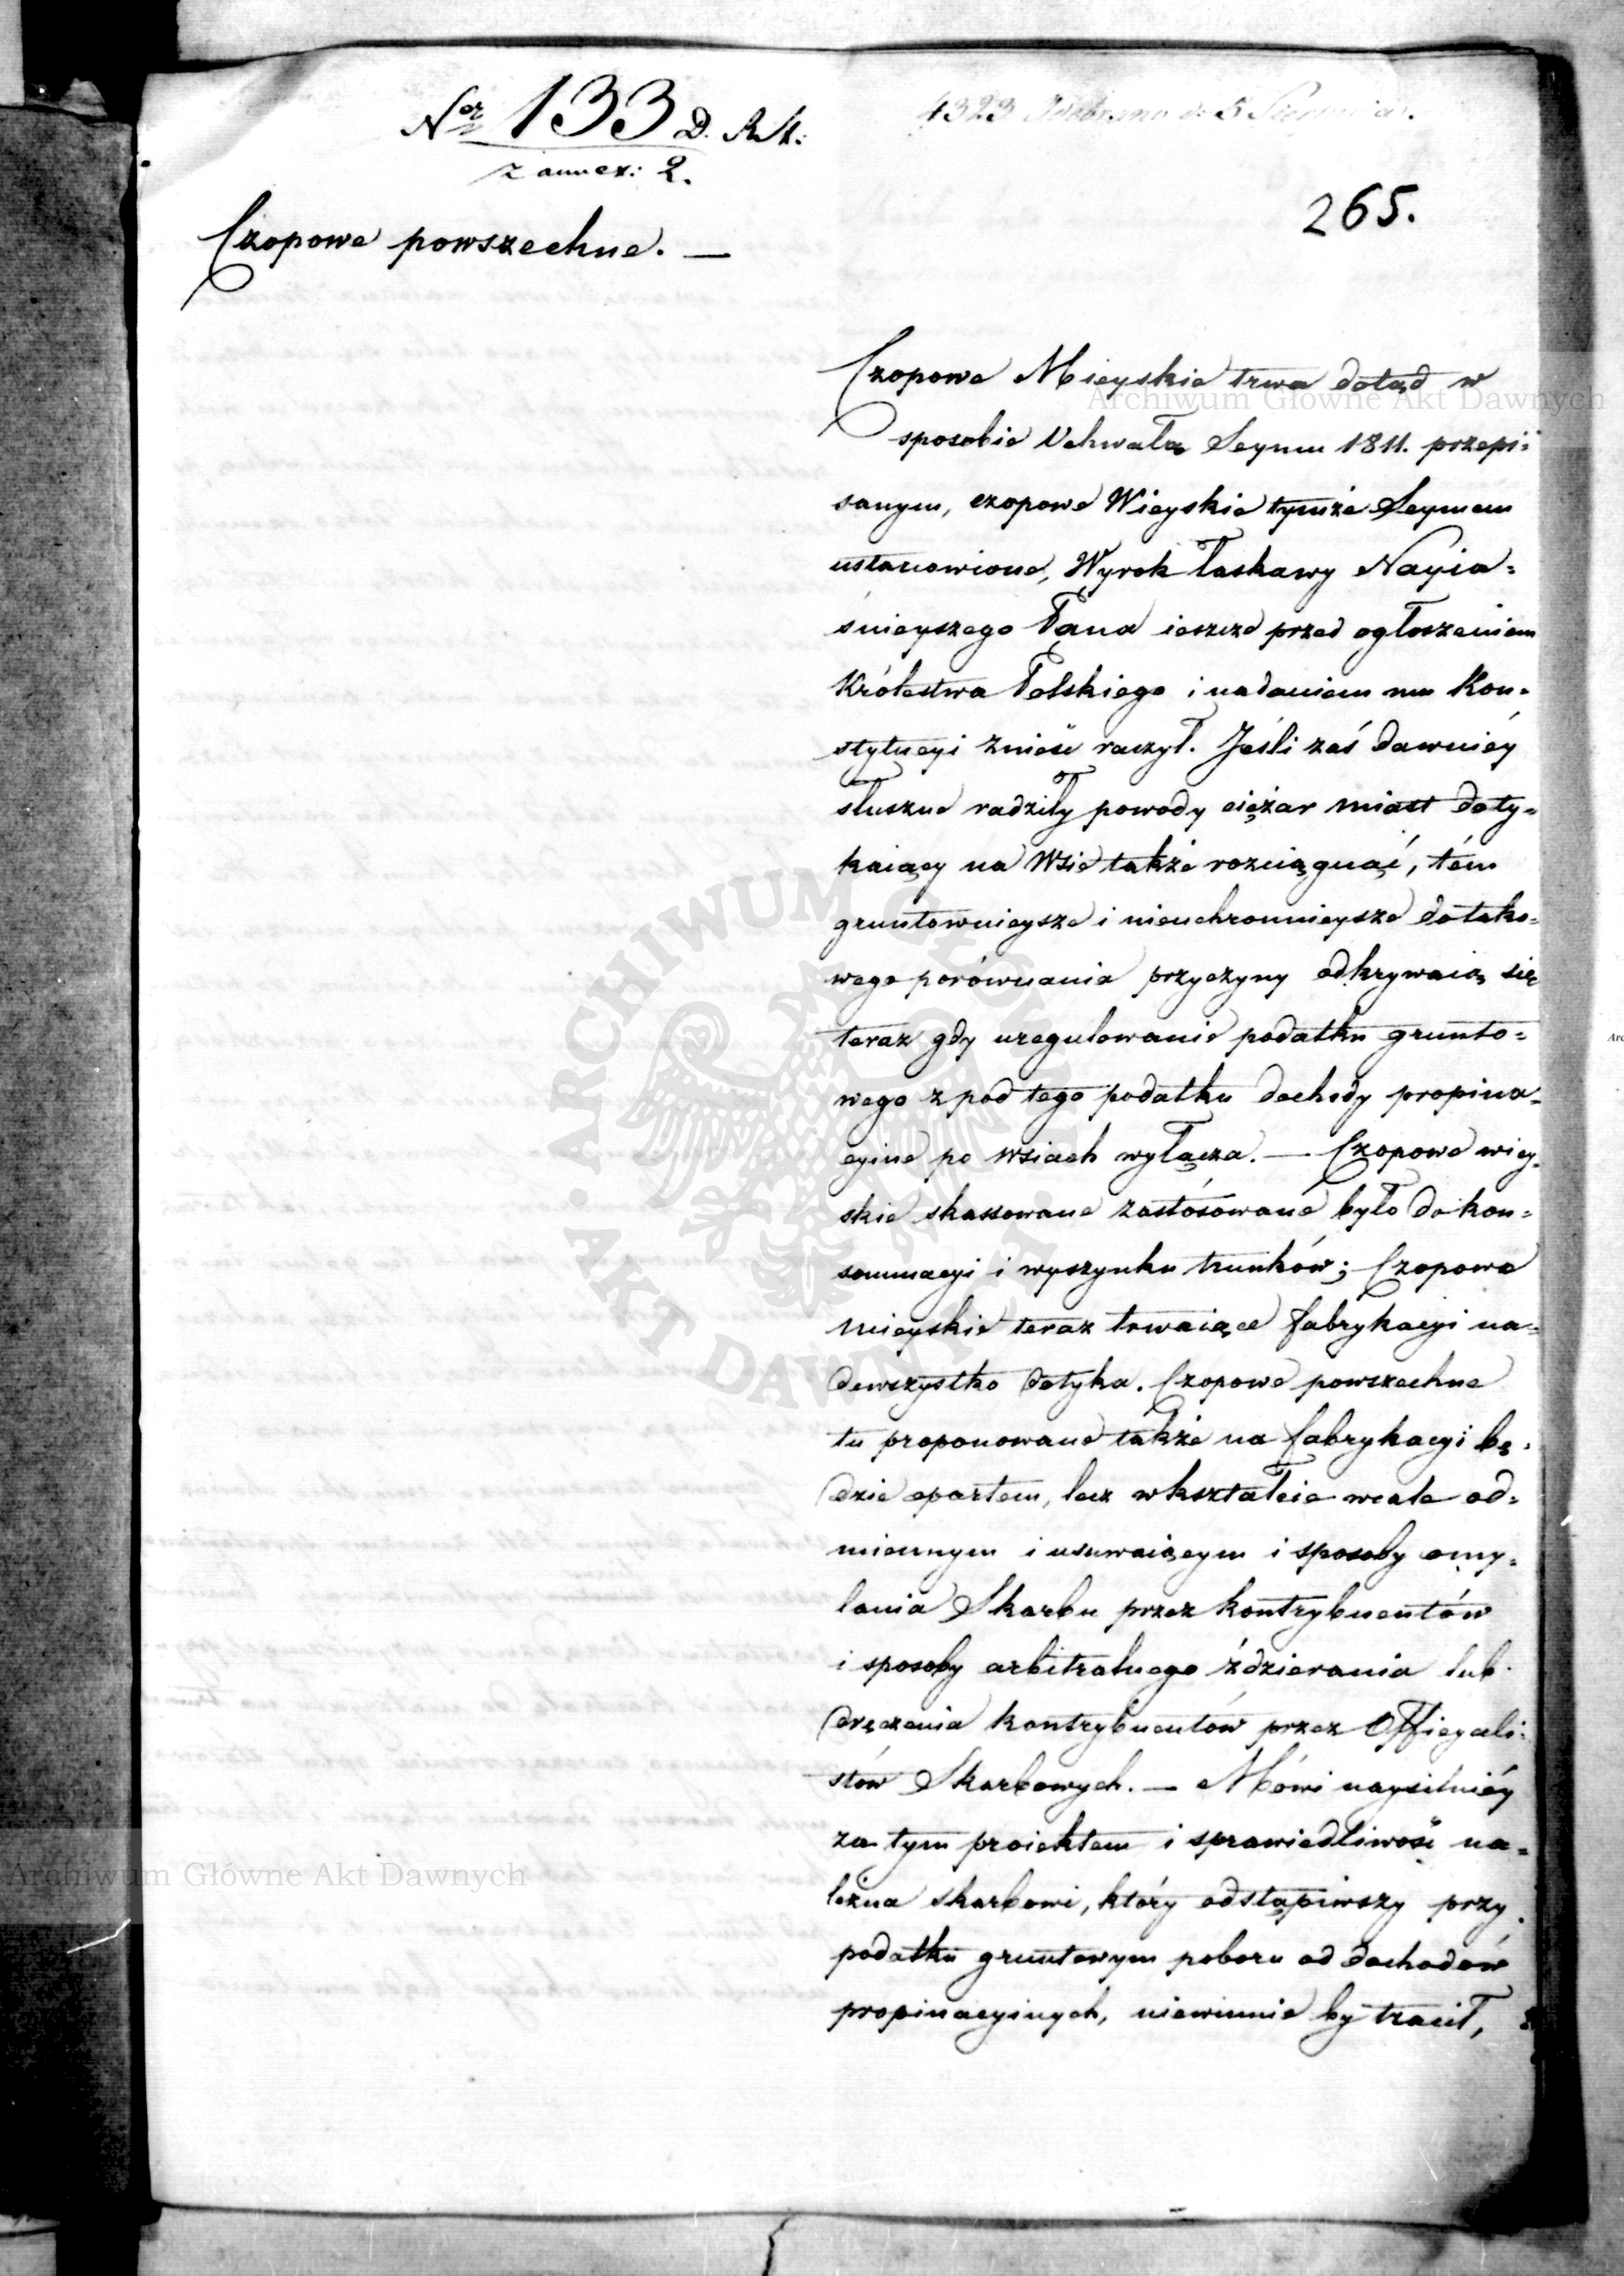 Ner 133 D.
z annex: 2.
4323
265.
Czopowe powszechne. —
Czopowe Mieyskie trwa dotąd w
sposobie Uchwałą Seymu 1811. przepi=
sanym, czopowe Wieyskie tymże Seymem
ustanowione, Wyrok łaskawy Nayia=
śnieyszego Pana ieszcze przed ogłoszeniem
Królestwa Polskiego i nadaniem mu Kon=
stytucyi znieść raczył. Jeśli zaś dawniéy
słuszne radziły powody ciężar miast doty=
kaiący na Wsie także rozciągnąć, tém
gruntownieysze i nieuchronnieysze do tako=
wego porównania przyczyny odkrywaią się
teraz gdy uregulowanie podatku grunto=
wego z pod tego podatku dochody propina=
cyine po wsiach wyłącza. — Czopowe wiey=
skie skassowane zastósowane było do kon=
sommacyi i wyszynku trunków; Czopowe
mieyskie teraz trwaiące fabrykacyi na=
dewszystko dotyka. Czopowe powszechne
tu proponowane także na fabrykacyi bę=
dzie opartem, lecz w kształcie wcale od=
miennym i usuwaiącym i sposoby omy=
lania Skarbu przez kontrybuentów
i sposoby arbitralnego ździerania lub
dręczenia kontrybuentów przez Officyali=
stów Skarbowych. — Mówi naysilniéy
za tym proiektem i sprawiedliwość na=
leżna skarbowi, który odstąpiwszy przy
podatku gruntowym poboru od dochodów
propinacyinych, niewinnie by tracił,
Archiwum Główne Akt Dawnych
ARCHIWUM GŁÓWNE
AKT DAWNYCH
Archiwum Główne Akt Dawnych